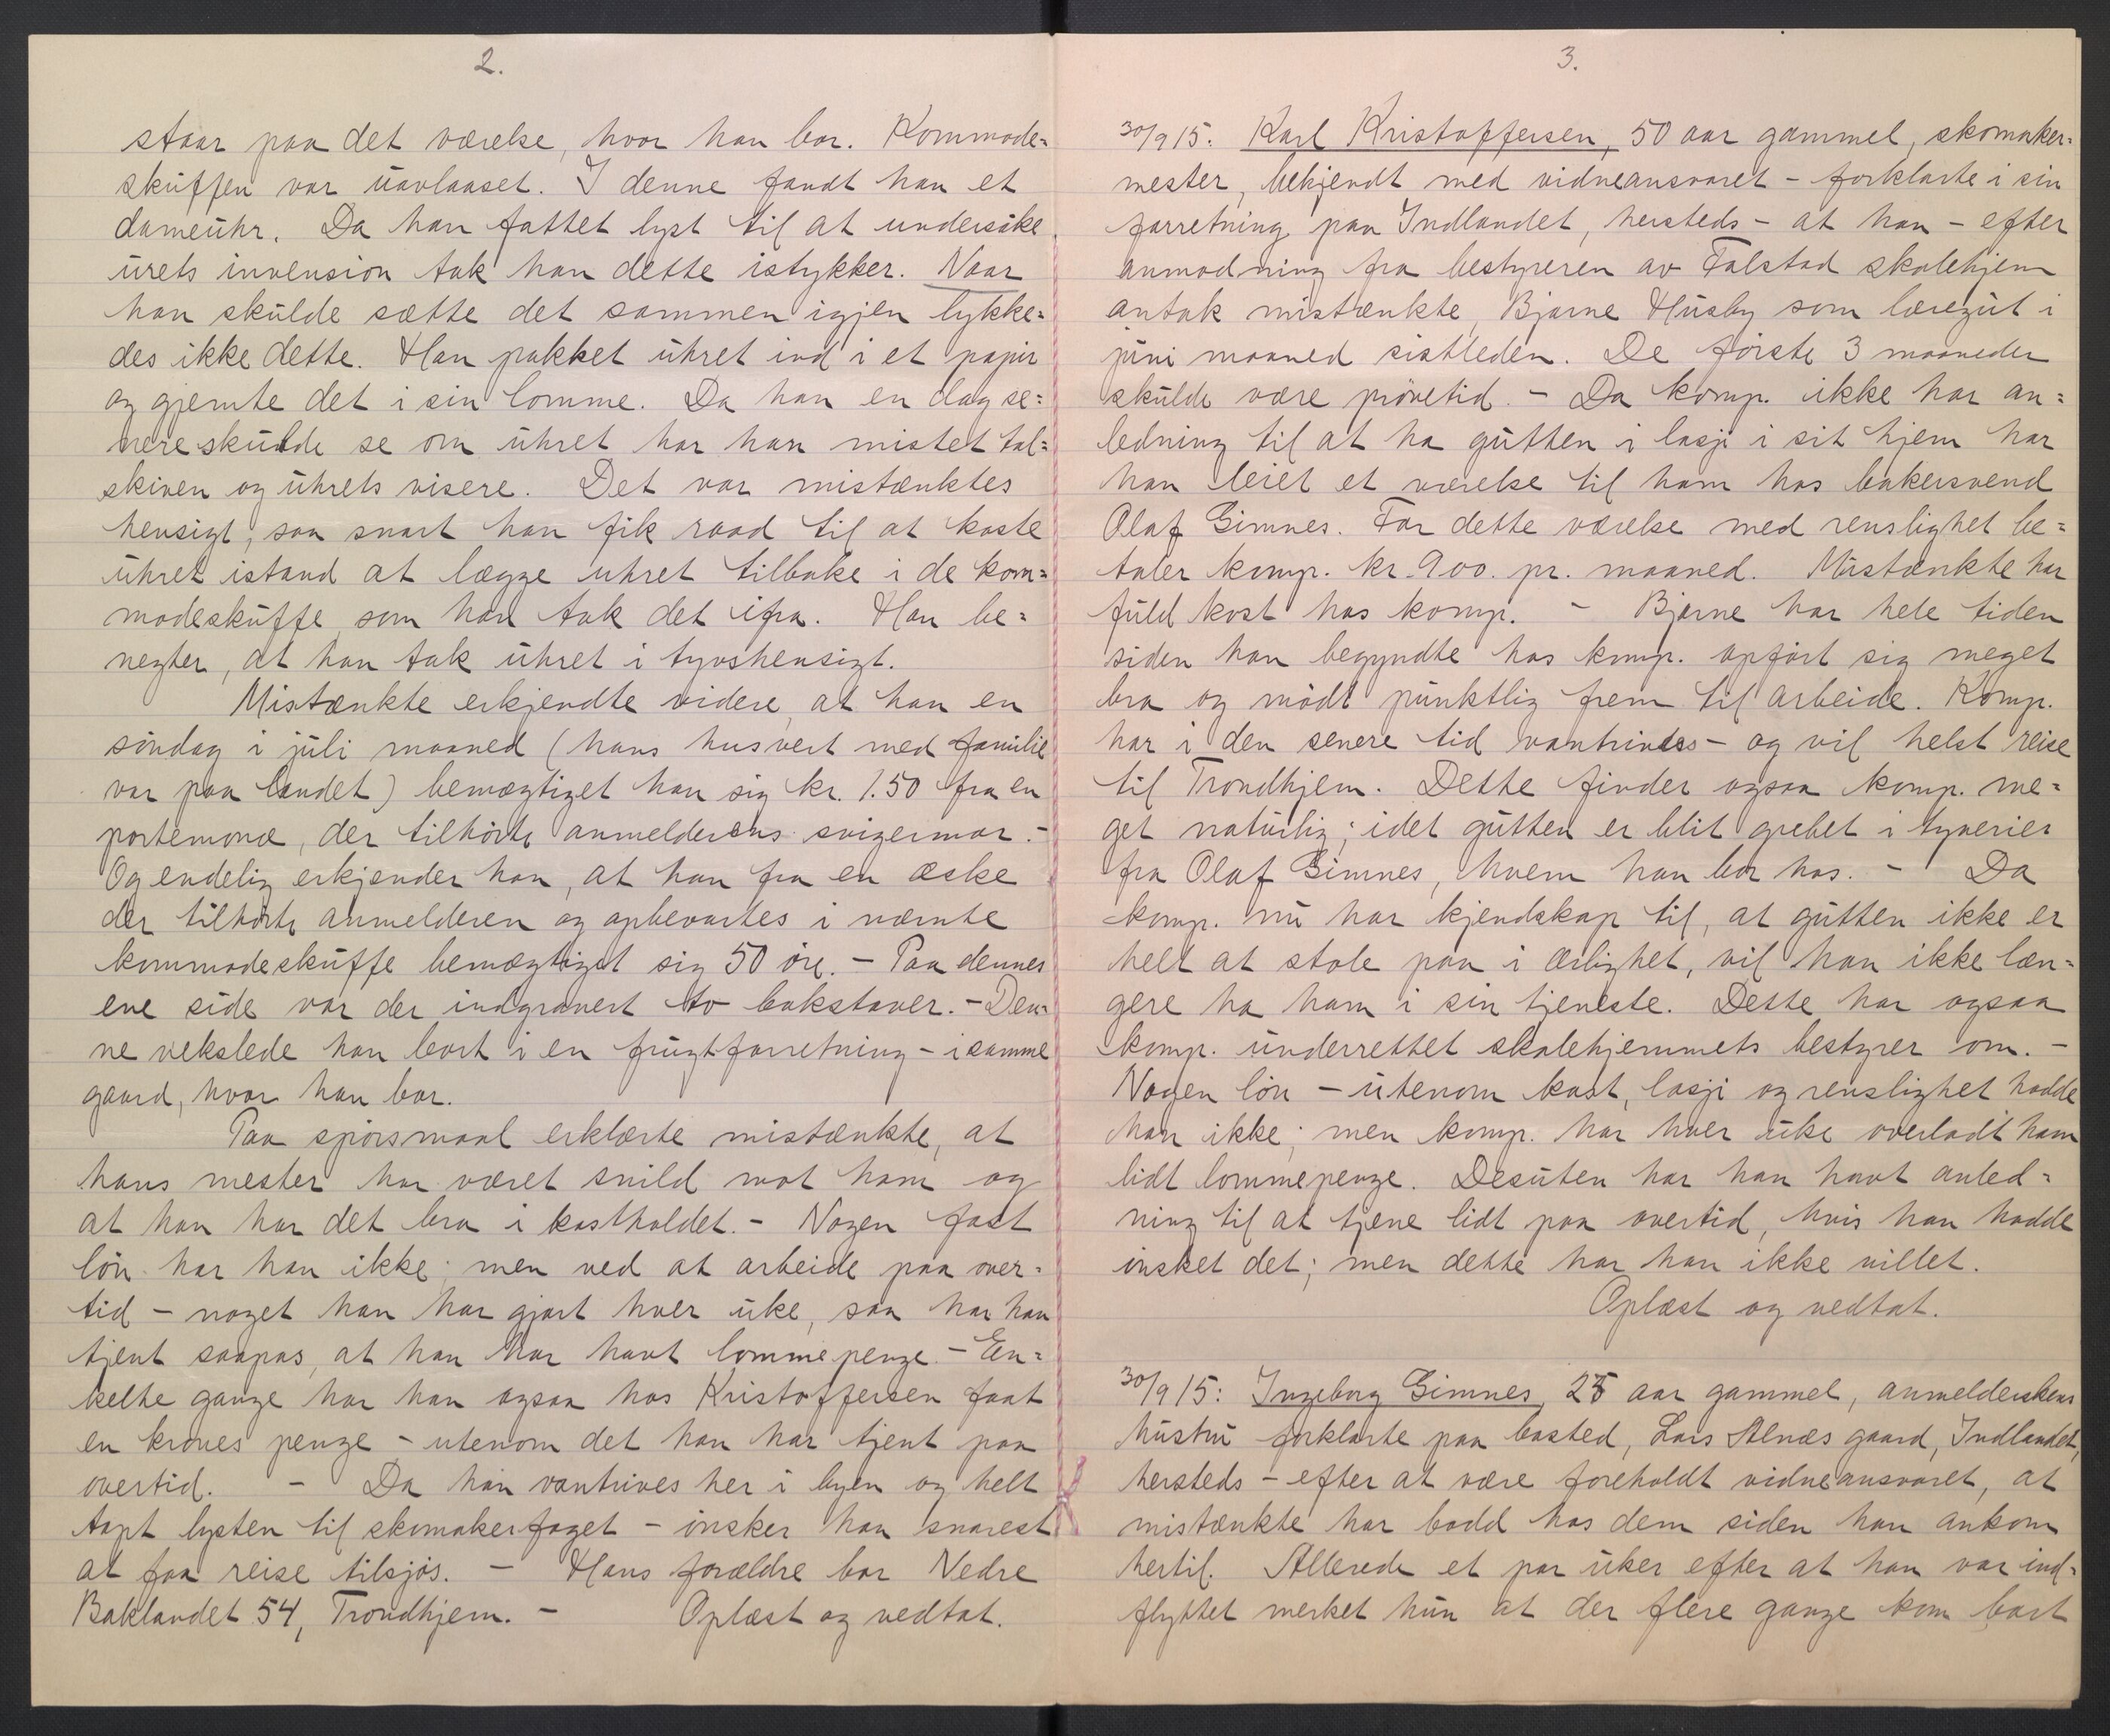 2.
staar paa det værelse, hvor han bor. Kommode=
skuffen var uavlaaset. I denne fandt han et
dameuhr. Da han fattet lyst til at undersøke
urets invension tok han dette istykker. Naar
han skulde sætte det sammen igjen lykke=
des ikke dette. Han pakket uhret ind i et papir
og gjemte det i sin lomme. Da han en dag se=
nere skulde se om uhret har han mistet tal=
skiven og uhrets visere. Det var mistænktes
hensigt, saa snart han fik raad til at koste
uhret istand at lægge uhret tilbake i de kom=
modeskuffe som han tok det ifra. Han be=
negter, at han tok uhret i tyvshensigt.
Mistænkte erkjendte videre, at han en
søndag i juli maaned (hans husvert med familie
var paa landet) bemægtiget han sig kr. 1.50 fra en
portemonæ, der tilhørte anmelderens svigermor.-
Og endelig erkjender han, at han fra en æske
der tilhørte anmelderen og opbevartes i nævnte
kommodeskuffe bemægtiget sig 50 øre. - Paa dennes
ene side var der indgravert to bokstaver. - Den=
ne vekslede han bort i en frugtforretning - i samme
gaard, hvor han bor.
Paa spørsmaal erklærte mistænkte, at
hans mester har været snild mot ham og
at han har det bra i kostholdet. - Nogen fast
løn har han ikke; men ved at arbeide paa over=
tid - noget han har gjort hver uke, saa har han
tjent saapas, at han har havt lommepenge. - En=
kelte gange har han ogsaa hos Kristoffersen faat
en krones penge - utenom det han har tjent paa
overtid. - Da han vantrives her i byen og helt
tapt lysten til skomakerfaget - ønsker han snarest
at faa reise tilsjøs. - Hans forældre bor Nedre
Baklandet 54, Trondhjem. - Oplæst og vedtat.
3.
30/9 15: Karl Kristoffersen, 50 aar gammel, skomaker=
mester, bekjendt med vidneansvaret - forklarte i sin
forretning paa Indlandet, hersteds - at han - efter
anmodning fra bestyreren av Falstad skolehjem
antok mistænkte, Bjarne Husby som læregut i
juni maaned sistleden. De første 3 maaneder
skulde være prøvetid. - Da komp. ikke har an=
ledning til at ha gutten i losji i sit hjem har
han leiet et værelse til ham hos bakersvend
Olaf Gimnes. For dette værelse med renslighet be=
taler komp. kr. 9.00. pr. maaned. Mistænkte har
fuld kost hos komp. - Bjarne har hele tiden
siden han begyndte hos komp. opført sig meget
bra og mødt punktlig frem til arbeide. Komp.
har i den senere tid vantrives - og vil helst reise
til Trondhjem. Dette finder ogsaa komp. me=
get naturlig; idet gutten er blit grebet i tyverier
fra Olaf Gimnes, hvem han bor hos. - Da
komp. nu har kjendskap til, at gutten ikke er
helt at stole paa i ærlighet, vil han ikke læn=
gere ha ham i sin tjeneste. Dette har ogsaa
komp. underrettet skolehjemmets bestyrer om. -
Nogen løn - utenom kost, losji og renslighet hadde
han ikke; men komp. har hver uke overladt ham
lidt lommepenge. Desuten har han havt anled=
ning til at tjene lidt paa overtid, hvis han hadde
ønsket det; men dette har han ikke villet.
Oplæst og vedtat.
30/9 15: Ingeborg Gimnes, 25 aar gammel, anmelderskens
hustru forklarte paa bosted, Lars Alnæs gaard, Indlandet,
hersteds - efter at være foreholdt vidneansvaret, at
mistænkte har bodd hos dem siden han ankom
hertil. Allerede et par uker efter at han var ind=
flyttet merket hun at der flere gange kom bort